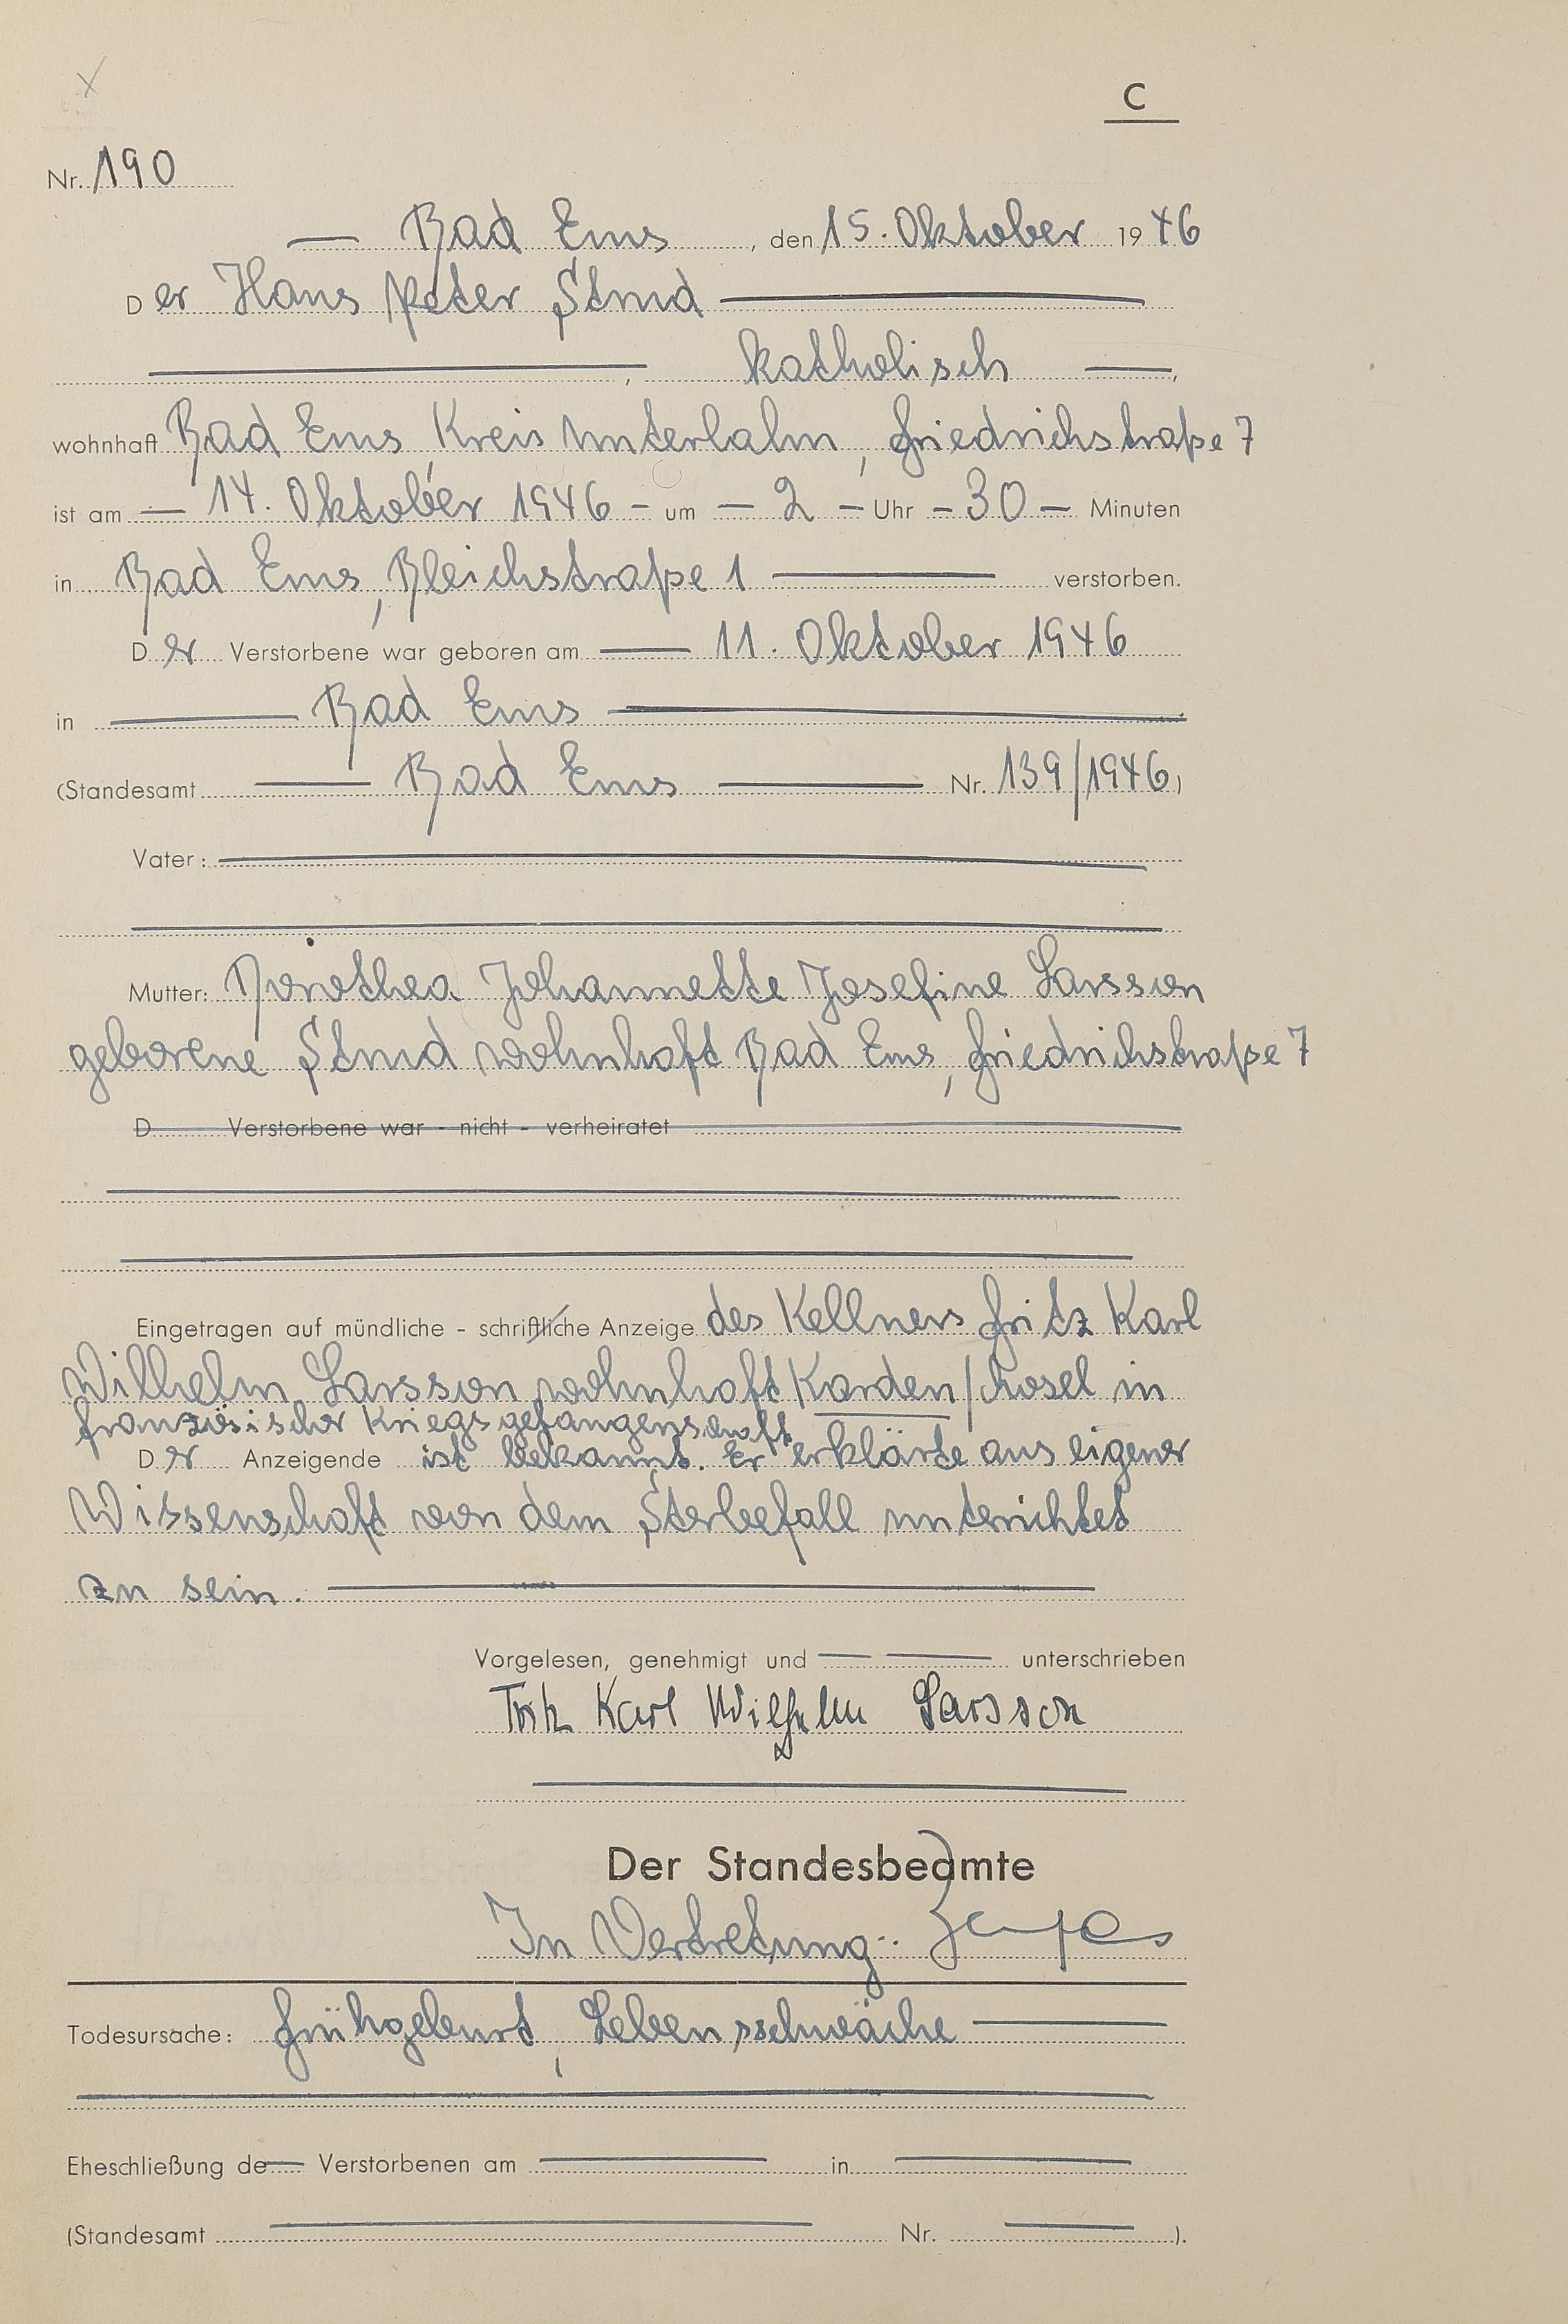 C
Nr. 190
Bad Ems, den 15. Oktober 1946
Der Hans Peter Stud
, katholisch,
wohnhaft Bad Ems, Kreis Unterlahn, Friedrichstraße 7
ist am 14. Oktober 1946 - um - 2 - Uhr - 30 - Minuten
in Bad Ems, Bleichstraße 1 verstorben.
Der Verstorbene war geboren am 11. Oktober 1946
in Bad Ems
(Standesamt Bad Ems Nr. 139/1946)
Vater:
Mutter: Dorothea Johannette Josefine Larsson
geborene Stud wohnhaft Bad Ems, Friedrichstraße 7
D Verstorbene war - nicht - verheiratet
Eingetragen auf mündliche - schriftliche Anzeige des Kellners Fritz Karl
Wilhelm Larsson wohnhaft Karden/Mosel in
französischer Kriegsgefangenschaft
Der Anzeigende ist bekannt. Er erklärte aus eigener
Wissenschaft von dem Sterbefall unterichtet
zu sein.
Vorgelesen, genehmigt und unterschrieben
Fritz Karl Wilhelm Larsson
Der Standesbeamte
In Vertretung:
Todesursache: Frühgeburt, Lebensschwäche
Eheschließung de Verstorbenen am in
(Standesamt Nr. ).